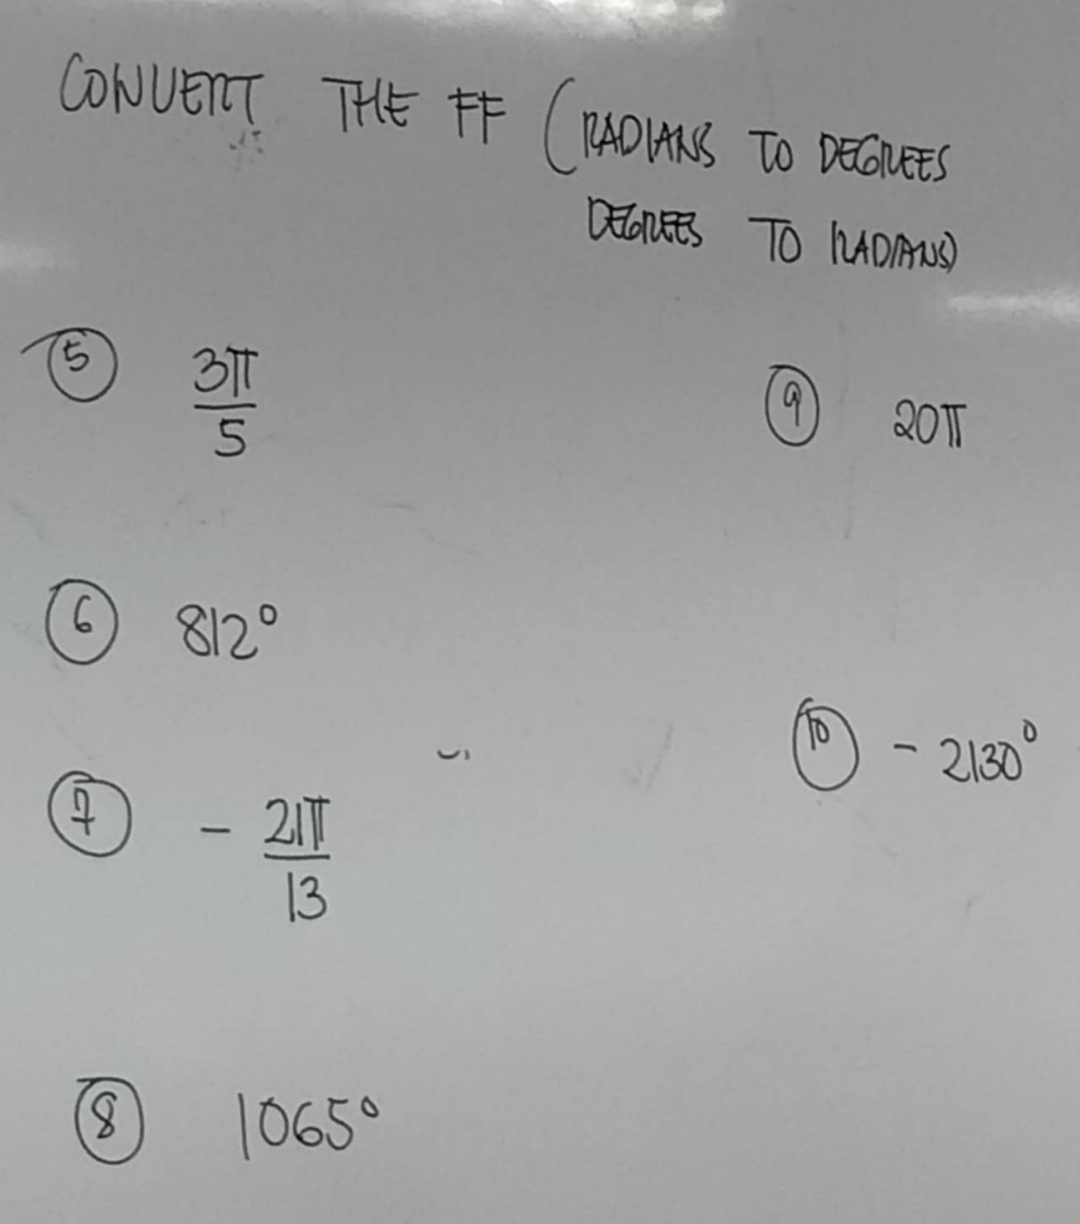 CONVERT THE FF (RADIANS TO DEGREES
DEGREES TO RADIANS)
5 3π/5
9 20π
6 812°
10 - 2130°
7 - 21π/13
8 1065°